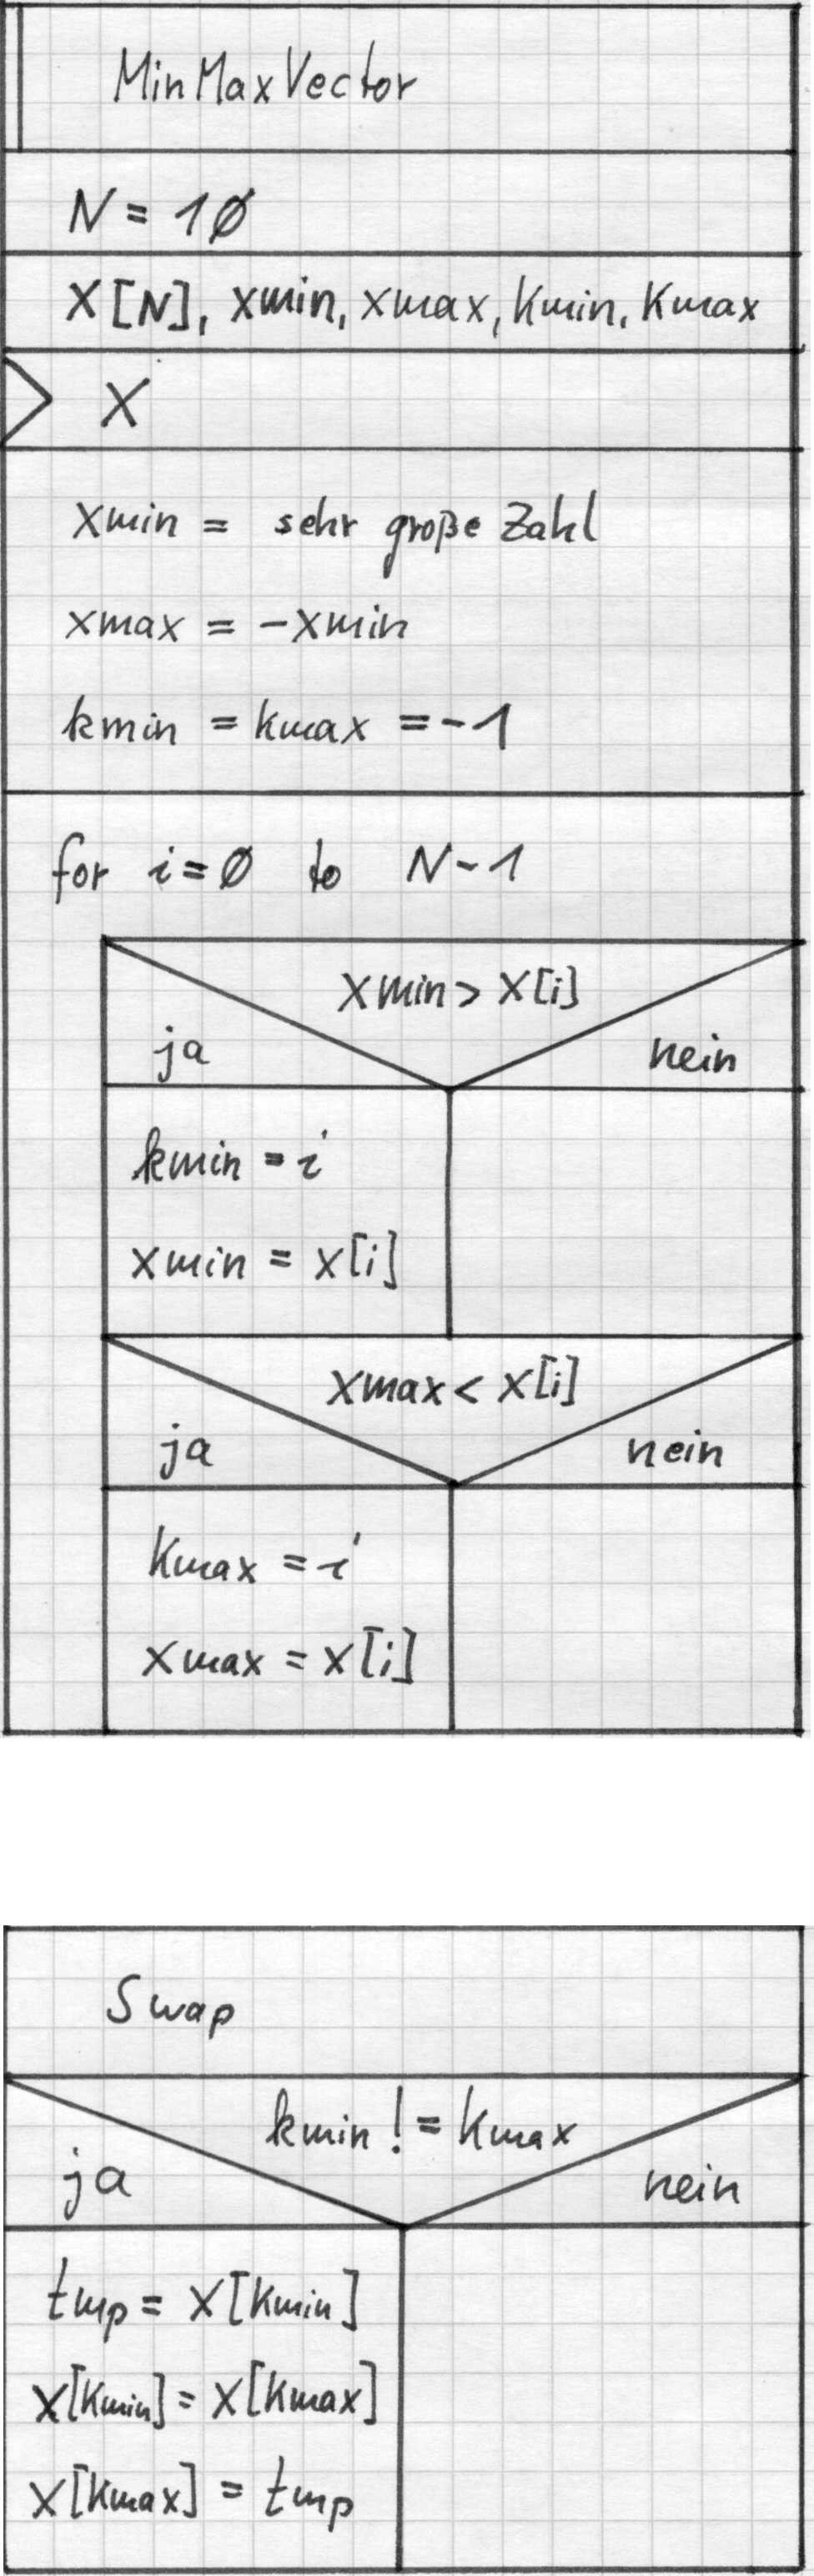 MinMaxVector
N = 1Ø
X[N], xmin, xmax, kmin, kmax
X
xmin = sehr große Zahl
xmax = -xmin
kmin = kmax = -1
for i=Ø to N-1
xmin > x[i]
ja nein
kmin = i
xmin = x[i]
xmax < x[i]
ja nein
kmax = i
xmax = x[i]
Swap
kmin != kmax
ja nein
tmp = x[kmin]
x[kmin] = x[kmax]
x[kmax] = tmp